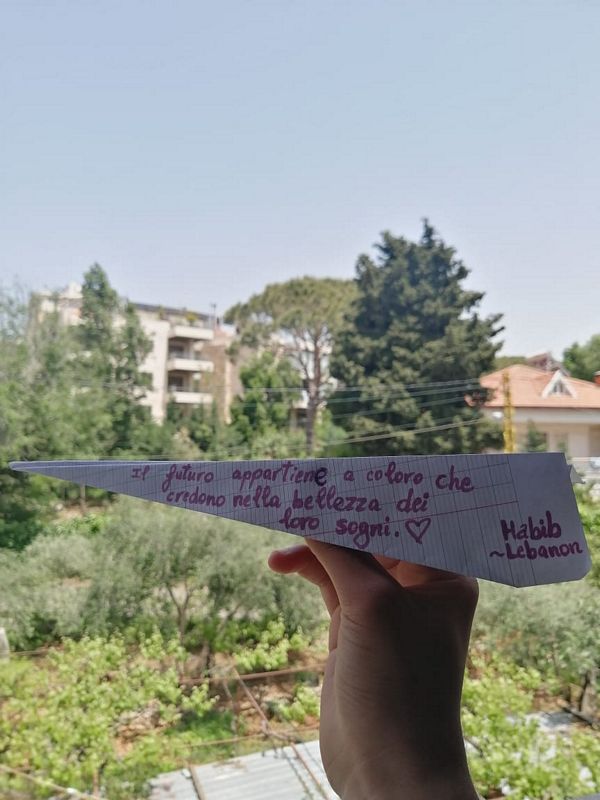 Il futuro appartiene a coloro che
credono nella bellezza dei
loro sogni. ♡
Habib
~Lebanon